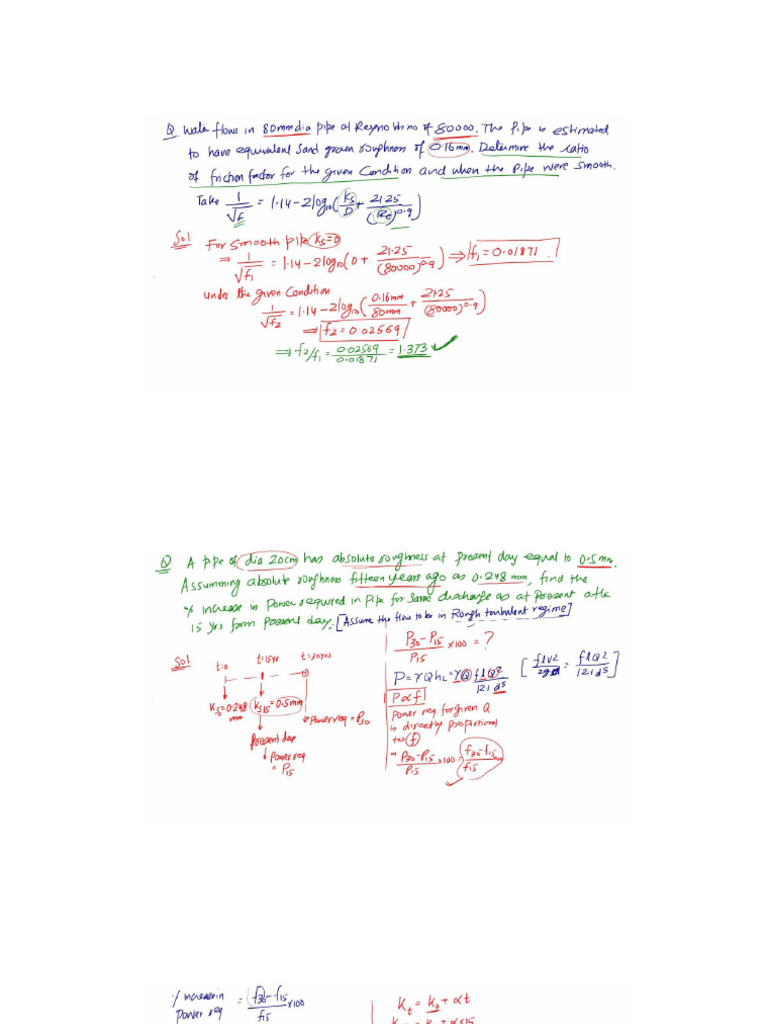 Q. Water flows in 80mm dia pipe at Reynolds no of 80000. The Pipe is estimated
to have equivalent sand grain roughness of 0.16mm. Determine the ratio
of friction factor for the given Condition and when the Pipe were smooth.
Take 1/√f = 1.14-2log₁₀(Ks/D + 21.25/(Re)^0.9)
Sol For Smooth pipe Ks=0
⇒ 1/√f₁ = 1.14-2log₁₀(0 + 21.25/(80000)^0.9) ⇒ f₁=0.01871
under the given Condition
1/√f₂ = 1.14-2log₁₀(0.16mm/80mm + 21.25/(80000)^0.9)
⇒ f₂=0.02569
⇒ f₂/f₁ = 0.02569/0.01871 = 1.373
Q A pipe of dia 20cm has absolute roughness at present day equal to 0.5mm.
Assumming absolute roughness fifteen years ago as 0.248 mm, find the
% increase in Power required in Pipe for same discharge as at Present after
15 yrs form Present day. [Assume the flow to be in Rough tourbulent regime]
Sol
t=0 t=15yr t=30yrs
Ks₀=0.248 mm
Ks15=0.5mm
Power req = P30
Present day
Power req = P15
P30-P15/P15 ×100 = ?
P=γQhL=γQ flQ²/12.1d⁵ [flv²/2gd = flQ²/12.1d⁵]
P∝f
Power req for given Q
is directly proportional
to f
P30-P15/P15 ×100 = f30-f15/f15
% increase in Power req = (f30-f15/f15 ×100
Kt = K₀+αt